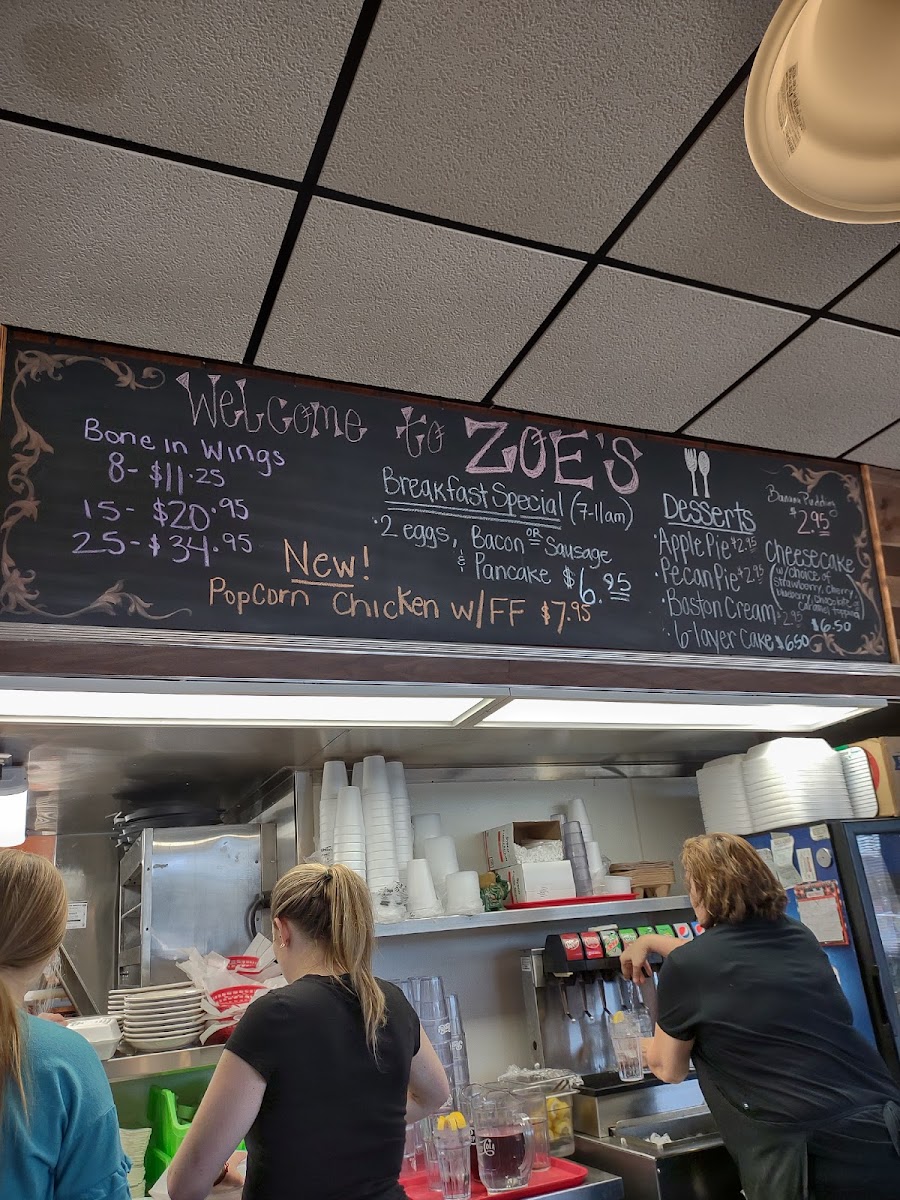 Welcome to ZOE'S
Bone in Wings
8- $11.25
15- $20.95
25- $34.95
New!
Popcorn Chicken w/FF $7.95
Breakfast Special (7-11am)
·2 eggs, Bacon OR Sausage
& Pancake $6.95
Desserts
·Apple Pie $2.95
·Pecan Pie $2.95
·Boston Cream $2.95
·6 layer Cake $6.50
Banana Pudding
$2.95
Cheesecake
(w/choice of
strawberry, cherry,
blueberry, chocolate or
caramel topping)
$6.50